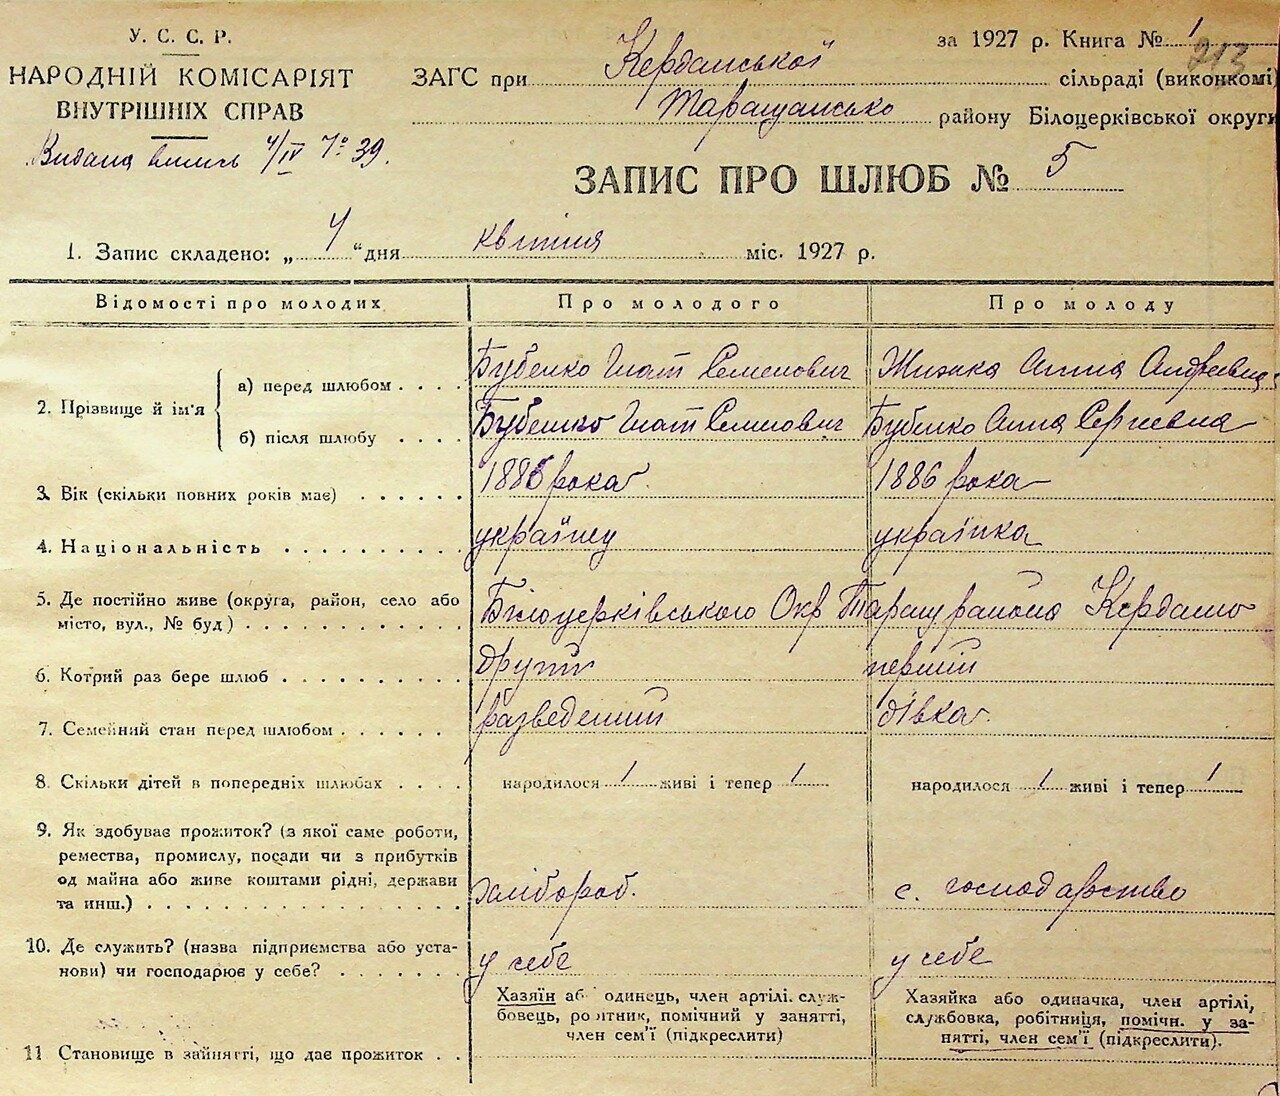 У. С. С. Р.
НАРОДНІЙ КОМІСАРІЯТ
ВНУТРІШНІХ СПРАВ
Видана випись 4/IV № 39.
за 1927 р. Книга № 1
213
ЗАГС при Керданської сільраді (виконкомі)
Таращансько району Білоцерківської округи
ЗАПИС ПРО ШЛЮБ № 5
1. Запис складено: „ 4 “ дня квітня міс. 1927 р.
Відомості про молодих Про молодого Про молоду
2. Прізвище й ім'я
а) перед шлюбом . . . . Бубенко Гнат Семенович Жижка Анна Андреевна
б) після шлюбу . . . . Бубенко Гнат Семенович Бубенко Анна Сергиевна
3. Вік (скільки повних років має) . . . . . . 1886 рока 1886 рока
4. Національність . . . . . . . . . . українец українка
5. Де постійно живе (округа, район, село або
місто, вул., № буд.) . . . . . . . . . . . . Білоцерківського Окр Таращ района Кердано
6. Котрий раз бере шлюб . . . . . . . . . . другий перший
7. Семейний стан перед шлюбом . . . . . . разведений дівка
8. Скільки дітей в попередніх шлюбах . . . . народилося 1 живі і тепер 1 народилося 1 живі і тепер 1
9. Як здобуває прожиток? (з якої саме роботи,
ремества, промислу, посади чи з прибутків
од майна або живе коштами рідні, держави
та инш.) . . . . . . . . . . . . . . . . . хлібороб. с. господарство
10. Де служить? (назва підприємства або уста-
нови) чи господарює у себе? . . . . . . . у себе у себе
Хазяїн або одинець, член артілі. служ-
бовець, робітник, помічний у занятті,
член сем'ї (підкреслити)
Хазяйка або одиначка, член артілі,
службовка, робітниця, помічн. у за-
нятті, член сем'ї (підкреслити).
11 Становище в зайнятті, що дає прожиток . .